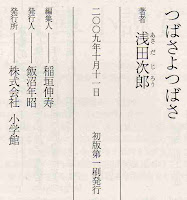 つばさよつばさ
著者 浅田次郎
あさだじろう
二〇〇九年十月十一日 初版第一刷発行
編集人 稲垣伸寿
発行人 飯沼年昭
発行所 株式会社 小学館